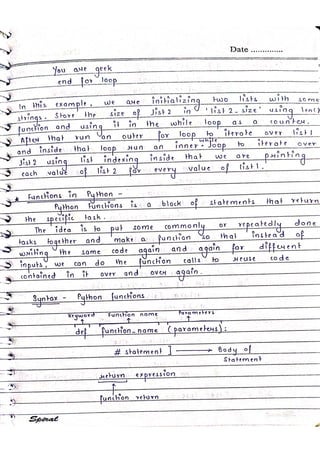 Date ..............
You are geek
end for loop
In this example, we are initializing two lists with some
strings. Store the size of list2 in 'list2_size' using len()
function and using it in the while loop as a counter.
After that run an outer for loop to iterate over list1
and inside that loop run an inner while loop to iterate over
list2 using list indexing inside that we are printing
each value of list2 for every value of list1.
* Functions in Python -
Python Functions is a block of statements that return
the specific task.
The idea is to put some commonly or repeatedly done
tasks together and make a function so that instead of
writing the same code again and again for different
inputs, we can do the function calls to reuse code
contained in it over and over again.
Syntax - Python functions
Keyword Function name Parameters
'def' function_name '(parameters):
# statement ] → Body of
Statement
return expression
function return
Spiral